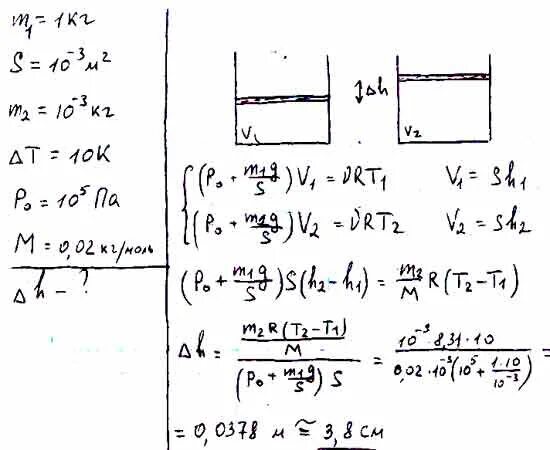 m₁ = 1 кг
S = 10⁻³ м²
m₂ = 10⁻³ кг
ΔT = 10K
P₀ = 10⁵ Па
M = 0,02 кг/моль
Δh - ?
V₁
Δh
V₂
(P₀ + m₁g/S) V₁ = νRT₁ V₁ = Sh₁
(P₀ + m₁g/S) V₂ = νRT₂ V₂ = Sh₂
(P₀ + m₁g/S) S(h₂ - h₁) = m₂/M R(T₂ - T₁)
Δh = (m₂R(T₂ - T₁)/M) / ((P₀ + m₁g/S) S) = 10⁻³ · 8,31 · 10 / 0,02 · 10⁻³ (10⁵ + 1·10/10⁻³) =
= 0,0378 м ≅ 3,8 см